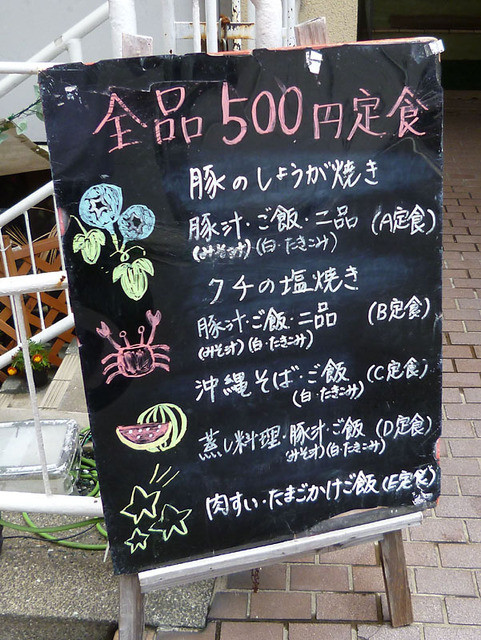 全品500円定食
豚のしょうが焼き
豚汁・ご飯・二品 (A定食)
(みそ汁) (白・たきこみ)
クチの塩焼き
豚汁・ご飯・二品 (B定食)
(みそ汁) (白・たきこみ)
沖縄そば・ご飯 (C定食)
(白・たきこみ)
蒸し料理・豚汁・ご飯 (D定食)
(みそ汁) (白・たきこみ)
肉すい・たまごかけご飯 (E定食)